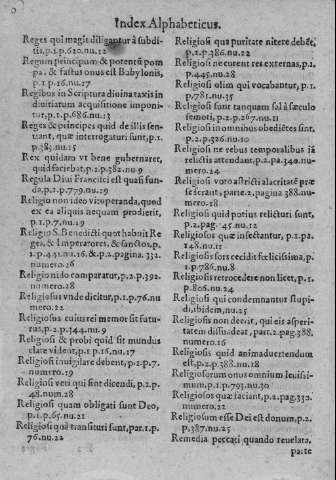 Index Alphabeticus.
Reges qui magis diligantur à subdi-
tis, p.1.p.620.nu.12
Regum principum & potentū pom
pa, & fastus onus est Babylonis,
p.1.p.16.nu.17
Regibus in Scriptura divina taxis in
divitiarum acquisitione imponi-
tur, p.1.p.686.nu.13
Reges & principes quid de illis sen-
tiant, quæ interrogati sunt, p.1.
p.383.nu.15
Rex quidam vt bene gubernaret,
quid faciebat, p.2.p.382.nu.9
Regula Divi Francisci est quasi fun-
da, p.1.p.779.nu.19
Religio non ideo vituperanda, quod
ex ea aliquis nequam prodierit,
p.1.p.77.nu.19
Religio S. Benedicti quot habuit Re
ges, & Imperatores, & sanctos, p.
2.p.431.nu.16.& p.2.pagina.332.
numero.26
Religio nido comparatur, p.2.p.392.
numero.28
Religiosus vnde dicitur, p.1.p.76.nu
mero.22
Religiosus cuius rei memor sit futu-
rus, p.2.p.344.nu.9
Religiosi & probi quid sit mundus
clare vident, p.1.p.16.nu.17
Religiosi invigilare debent, p.2.p.7.
numero.19
Religiosi veri qui sint dicendi, p.2.p.
48.num.28
Religiosi quam obligati sunt Deo,
p.1.p.65.nu.21
Religiosi quâ transituri sunt, par.1.p.
76.nu.22
Religiosi qua puritate nitere debēt,
p.1.p.386.nu.22
Religiosi ne curent res externas, p.1.
p.445.nu.28
Religiosi olim qui vocabantur, p.1.
p.781.nu.35
Religiosi sunt tanquam sal à sæculo
semoti, p.2.p.267.nu.11
Religiosi in omnibus obediētes sint,
p.2.p.326.nu.10
Religiosi ne rebus temporalibus iā
relictis attendant, p.2.pa.340.nu-
mero.24
Religiosi voto astricti alacritatē præ
se ferant, parte.2.pagina 388.nu-
mero.18
Religiosi quid potius relicturi sunt,
p.2.pag.145.nu.12
Religiosos quæ insectantur, p.2.pa.
148.nu.11
Religiosi sors cecidit fœlicissima, p.
1.p.786.nu.8
Religiosis retrocedere non licet, p.1.
p.806.nu.24
Religiosi qui condemnantur stupi-
di, ibidem, nu.25
Religiosis non deerit, qui eis asperi-
tatem dissuadeat, part.2.pag.388.
numero.16
Religiosis quid animadvertendum
est, p.2.p.388.nu.18
Religiosorum onus omnium levissi-
mum, p.1.p.793.nu.30
Religiosos quæ faciant, p.2.pag.330.
numero.22
Religiosum esse Dei est donum, p.2.
p.387.nu.25
Remedia peccati quando revelata,
parte